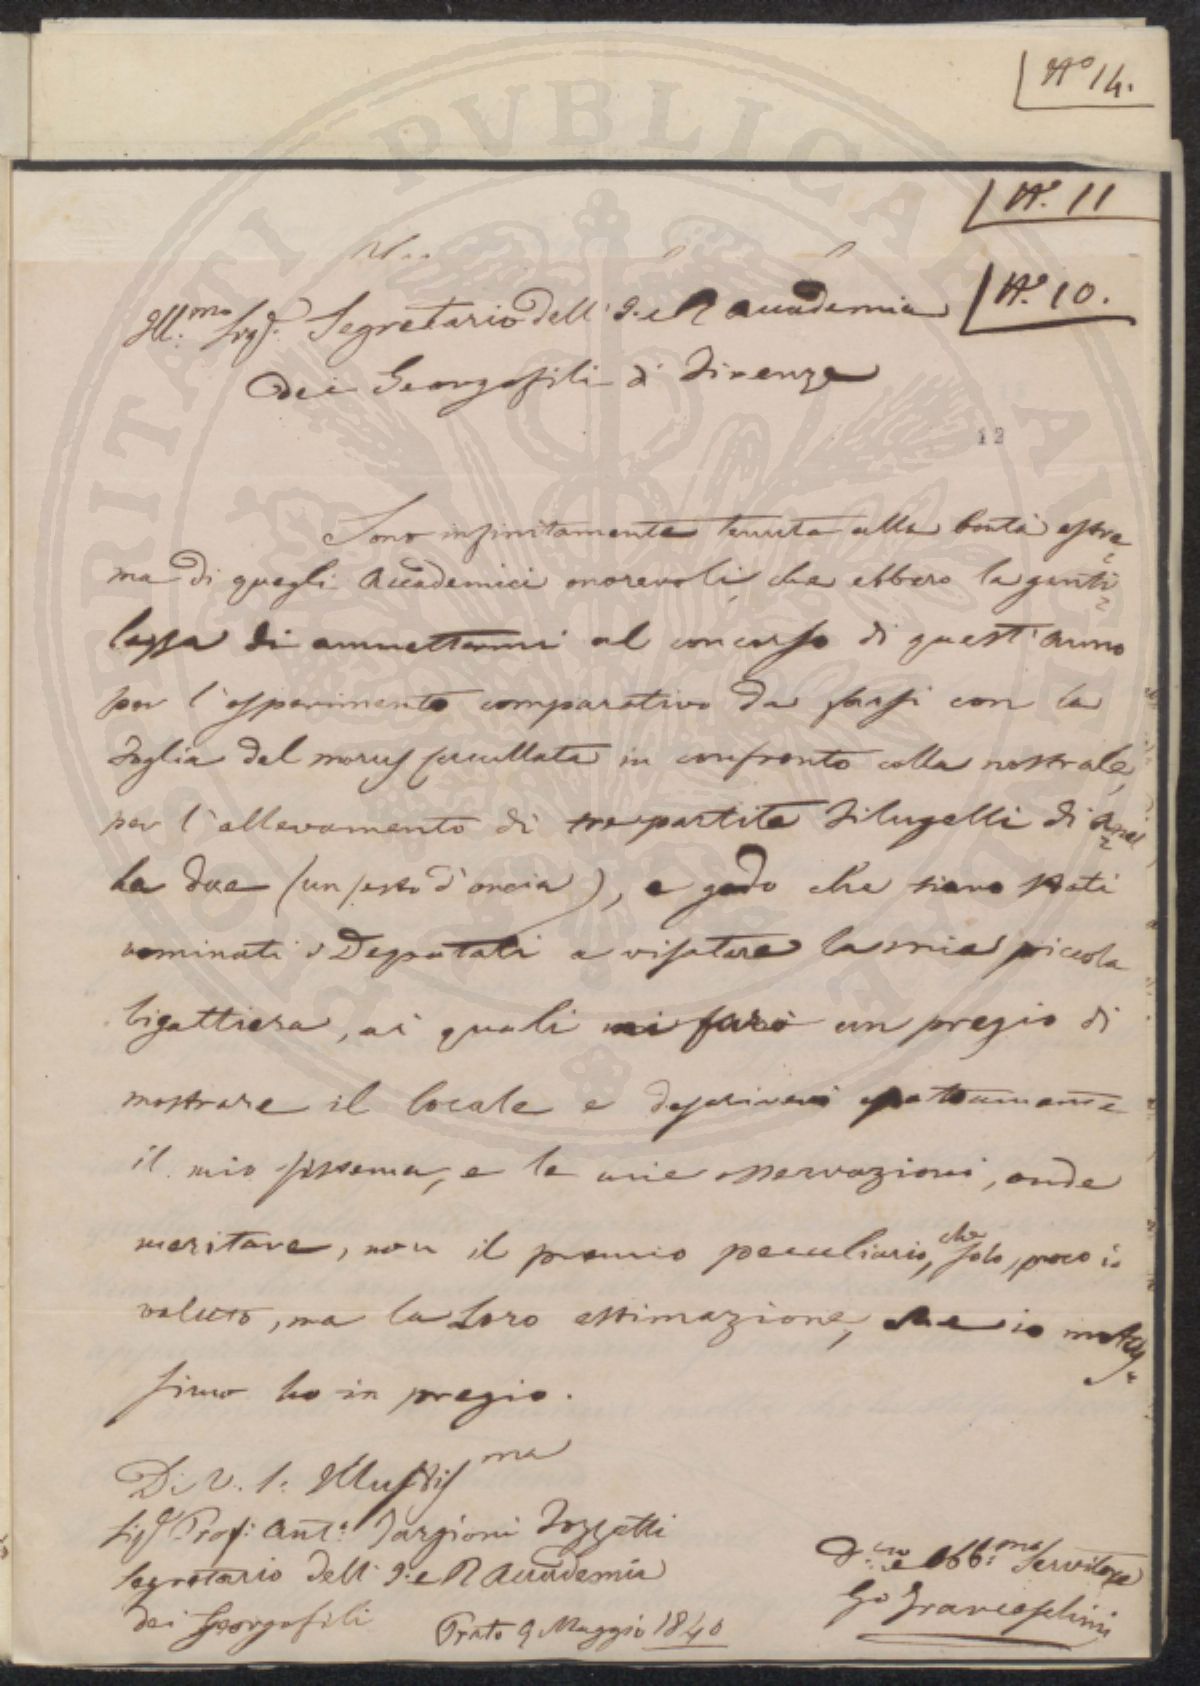 N.o 14.
N.o 11
N.o 10.
Ill:mo Sig.r Segretario dell' I. e R Accademia
dei Georgofili di Firenze
12
Sono infinitamente tenuta alla bontà estre=
ma di quegli Accademici onorevoli, che ebbero la genti=
lezza di ammettermi al concorso di quest'anno
per l'esperimento comparativo da farsi con la
foglia del morus cucullata in confronto colla nostrale,
per l'allevamento di tre partite Filugelli di
due (un sesto d'oncia), e godo che siano stati
nominati i Deputati a visitare la mia piccola
bigattiera, ai quali mi farò un pregio di
mostrare il locale e descrivere esattamente
il mio sistema, e le mie osservazioni, onde
meritare, non il premio peculiario, che solo, poco io
valuto, ma la Loro estimazione, che io moltis=
simo ho in pregio.
Di V. S. Illustris ma
Sig.r Prof: Ant.o Targioni Tozzetti
Segretario dell' I. e R Accademia
dei Georgofili
Prato 9 Maggio 1840
D.mo e Obb:mo Servitore
Franceschini
PUBLICAE